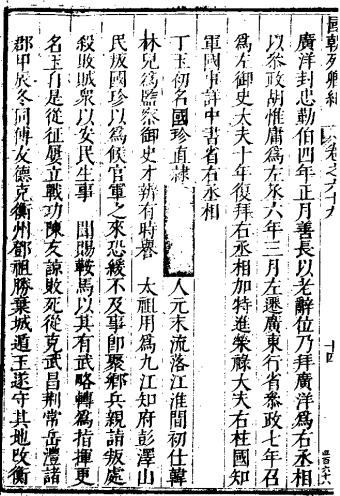 國朝列卿紀
卷之六十九
十四
廣洋封忠勤伯四年正月善長以老辭位乃拜廣洋為右丞相
以參政胡惟庸為左丞六年三月左遷廣東行省參政七年召
為左御史大夫十年復拜右丞相加特進榮祿大夫右柱國知
軍國事詳中書省右丞相
丁玉初名國珍直隸 人元末流落江淮間初仕韓
林兒為監察御史才辨有時譽 太祖用為九江知府彭澤山
民叛國珍以為候官軍之來恐緩不及事即聚鄉兵親詣叛處
殺敗賊眾以安民生事 聞賜鞍馬以其有武略轉為指揮更
名玉自是從征屢立戰功陳友諒敗死從克武昌荊常岳澧諸
郡甲辰冬同傅友德克衡州鄧祖勝棄城遁玉遂守其地改衡